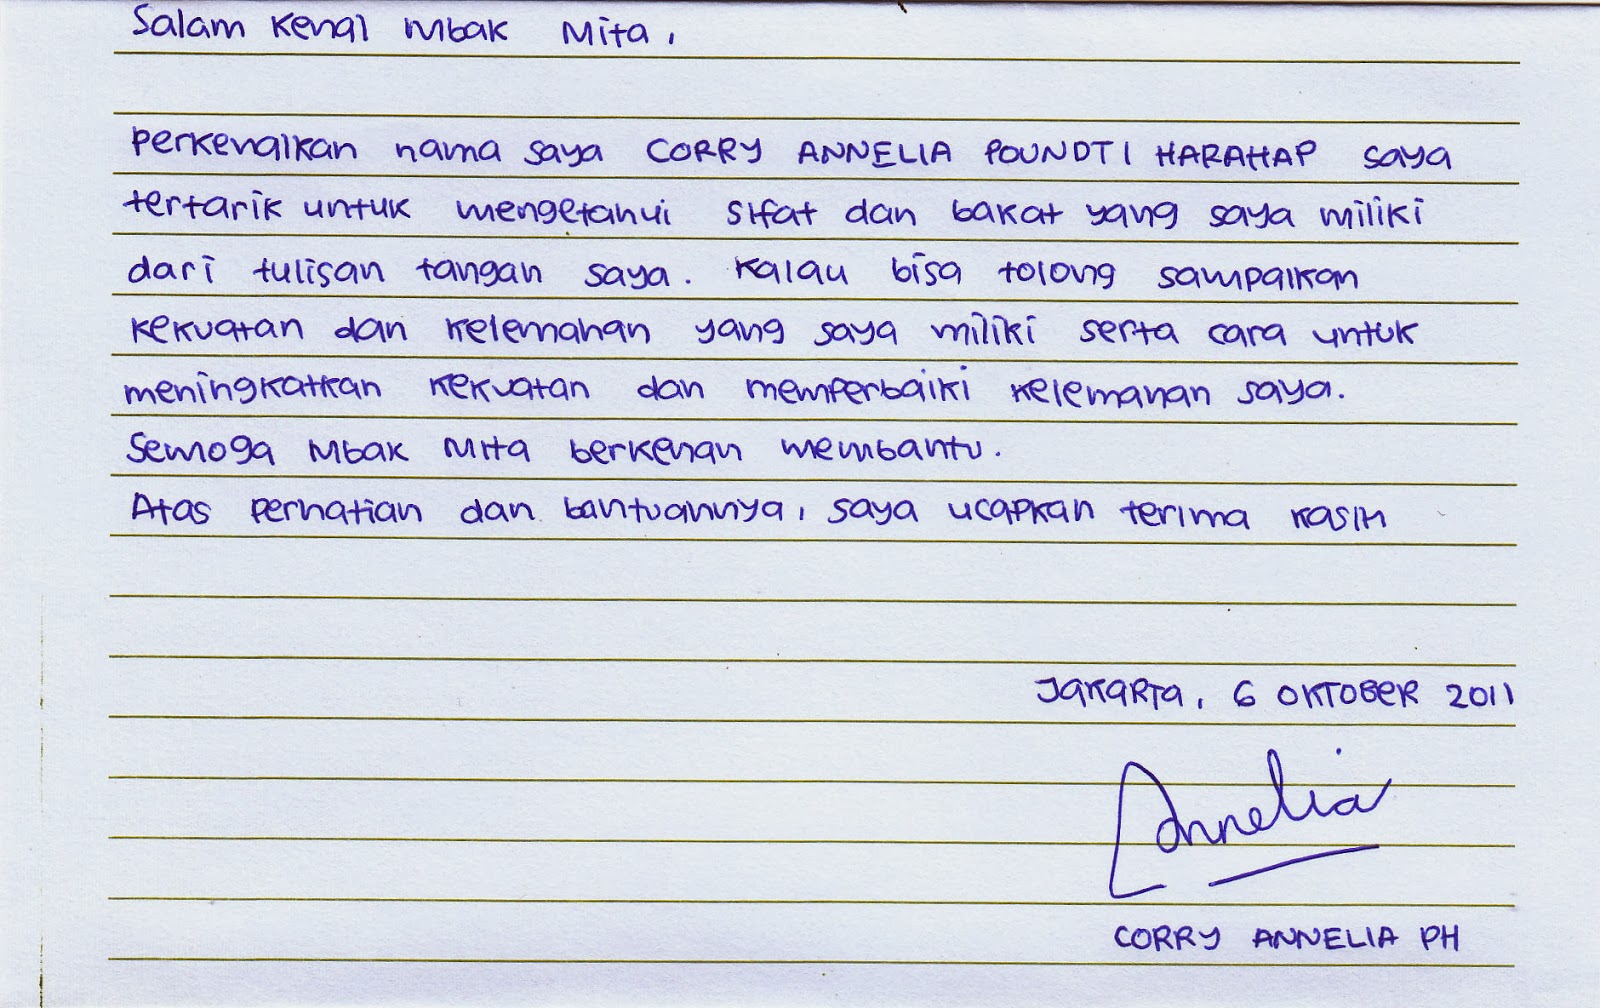 Salam kenal Mbak Mita,
Perkenalkan nama saya CORRY ANNELIA POUNDTI HARAHAP saya
tertarik untuk mengetahui sifat dan bakat yang saya miliki
dari tulisan tangan saya. Kalau bisa tolong sampaikan
kekuatan dan kelemahan yang saya miliki serta cara untuk
meningkatkan kekuatan dan memperbaiki kelemahan saya.
Semoga Mbak Mita berkenan membantu.
Atas perhatian dan bantuannya, saya ucapkan terima kasih
Jakarta, 6 OKTOBER 2011
Annelia
CORRY ANNELIA PH